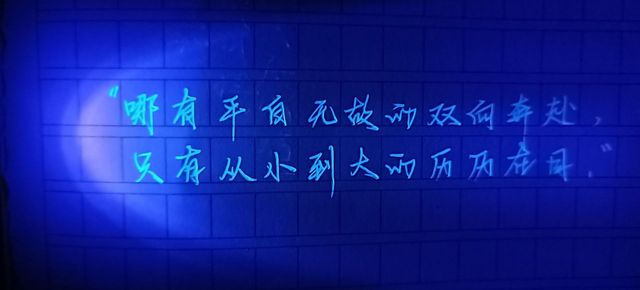 “哪有平白无故的双向奔赴，
只有从小到大的历历在目.”